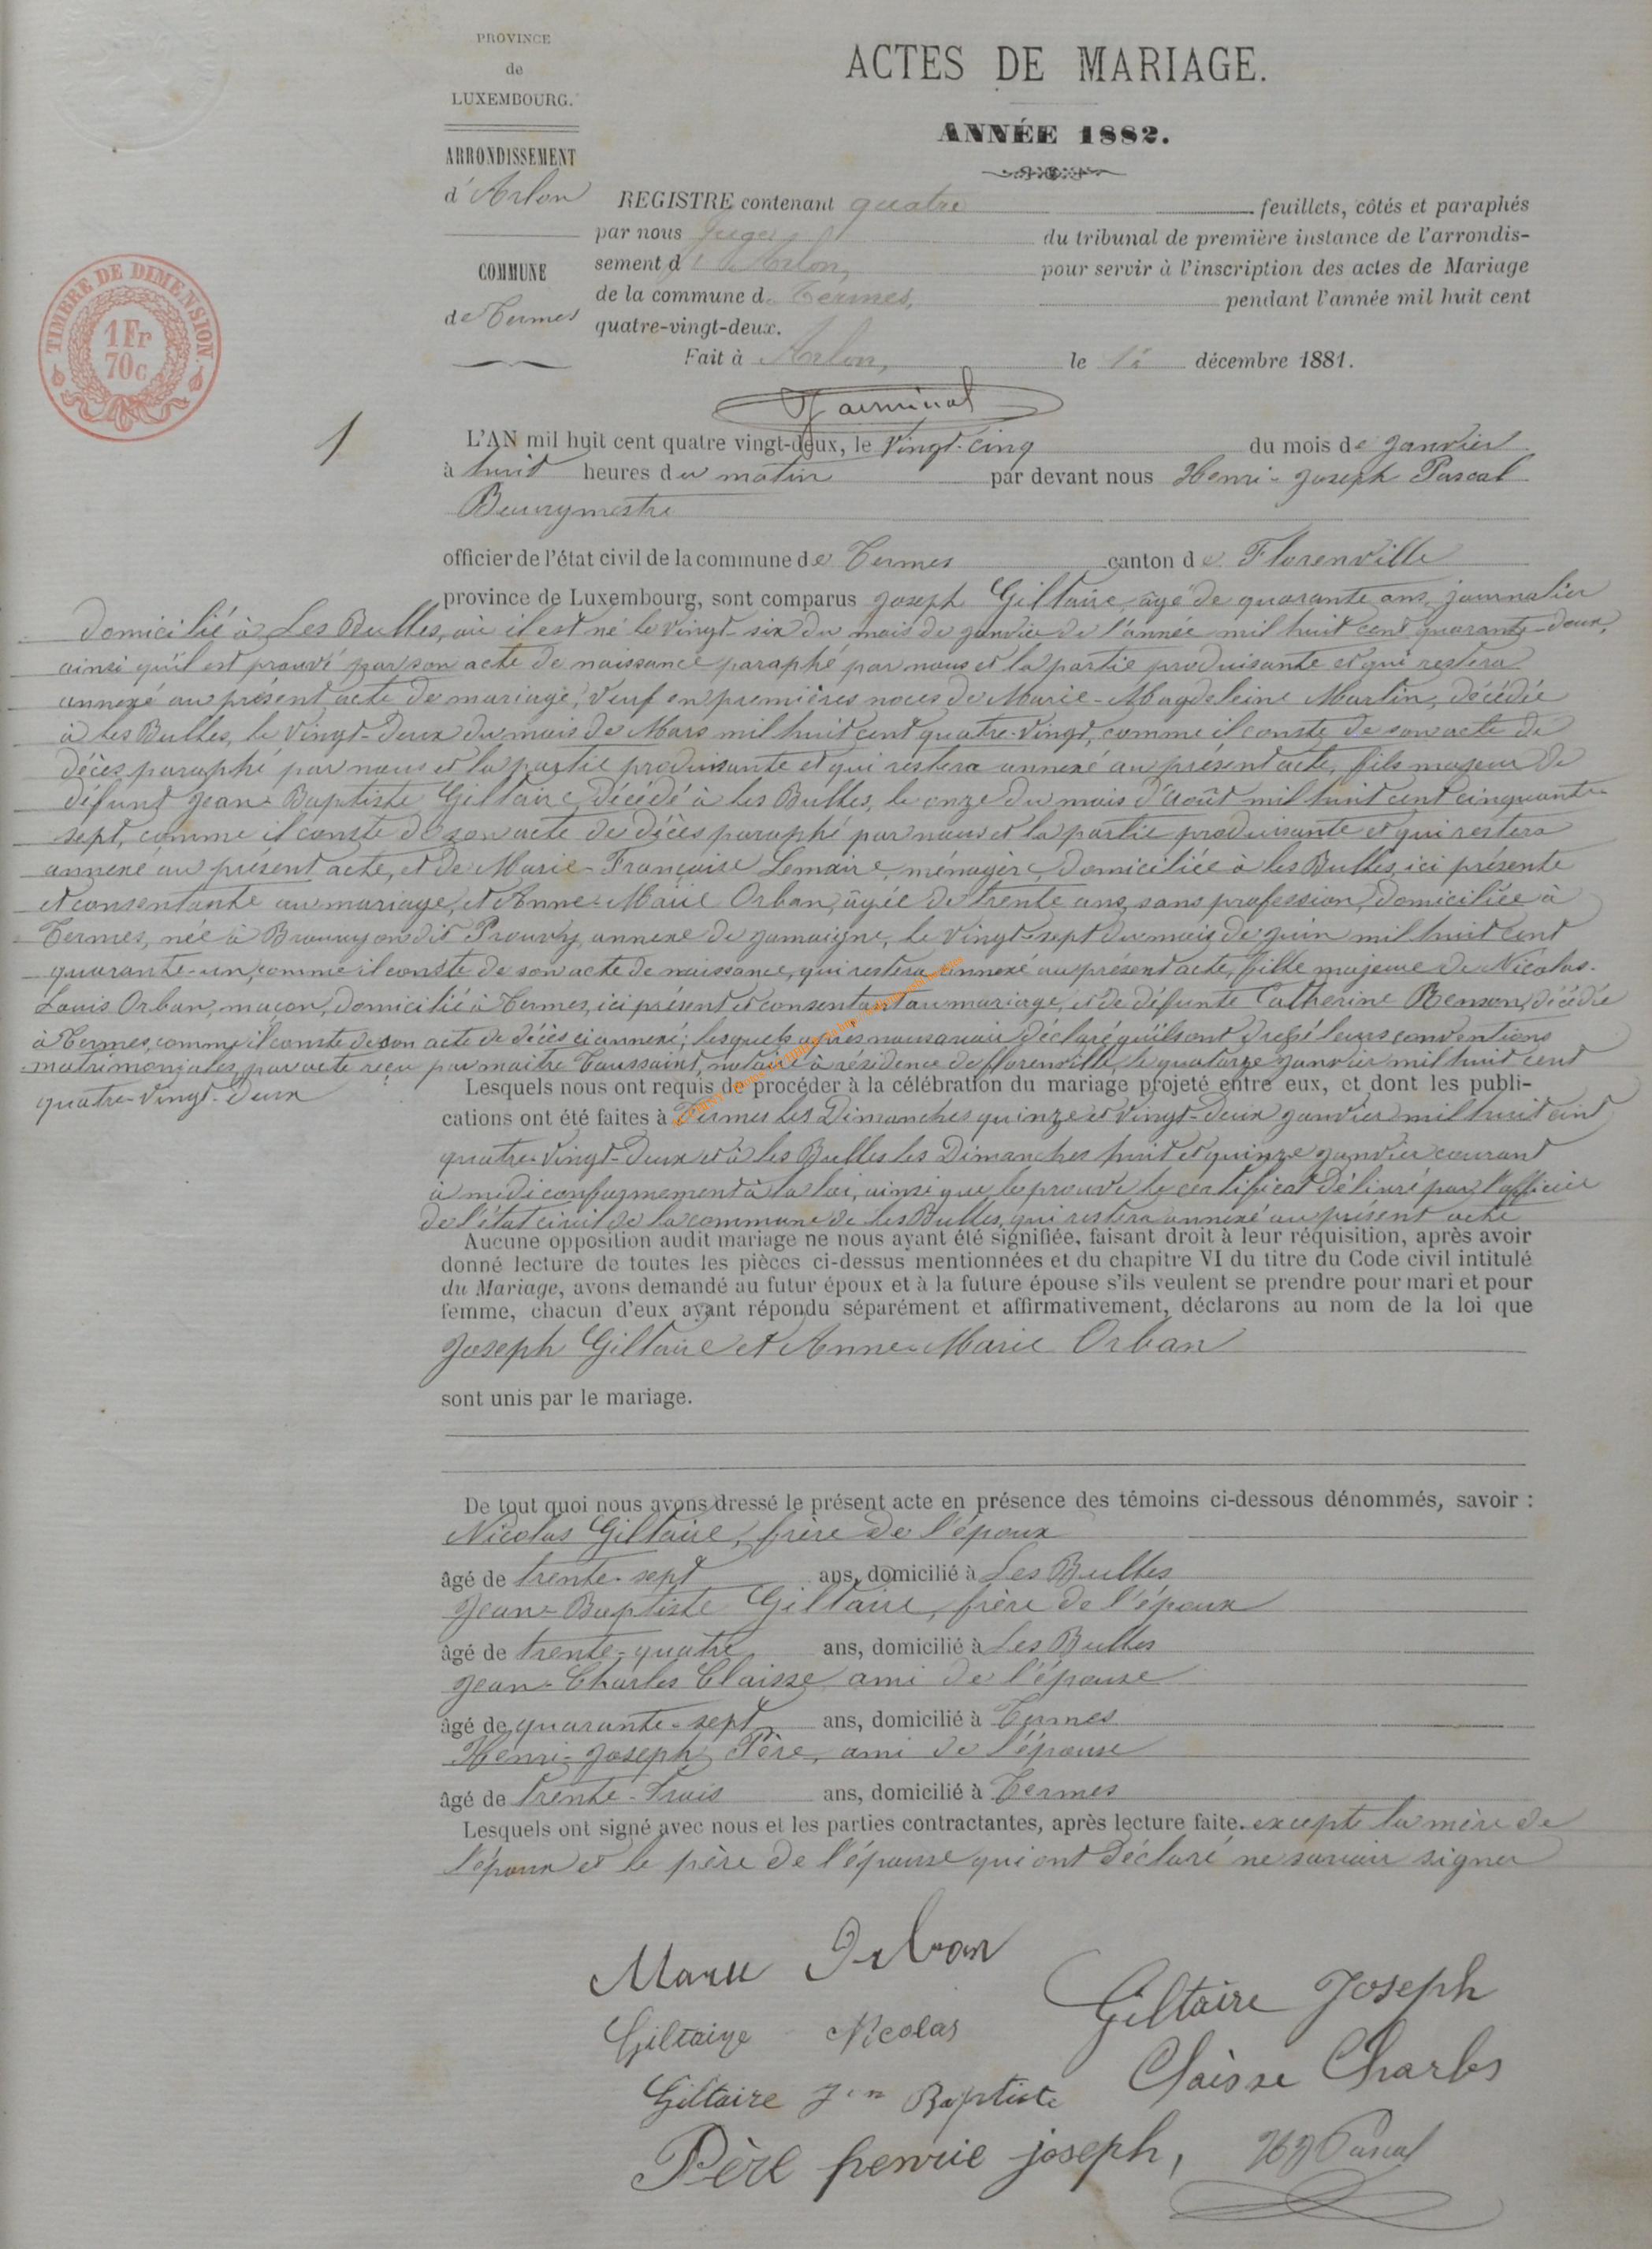 PROVINCE
de
LUXEMBOURG.
ARRONDISSEMENT
d'Arlon
COMMUNE
de Termes
TIMBRE DE DIMENSION.
1 Fr
70c
ACTES DE MARIAGE.
ANNÉE 1882.
REGISTRE contenant quatre feuillets, côtés et paraphés
par nous Juge du tribunal de première instance de l'arrondis-
sement d Arlon, pour servir à l'inscription des actes de Mariage
de la commune de Termes, pendant l'année mil huit cent
quatre-vingt-deux.
Fait à Arlon, le décembre 1881.
1
L'AN mil huit cent quatre vingt-deux, le vingt-cinq du mois de Janvier
à huit heures du matin par devant nous Henri-Joseph Pascal
Bourgmestre
officier de l'état civil de la commune de Termes canton de Florenville
province de Luxembourg, sont comparus Joseph Giltaire, âgé de quarante ans, journalier
domicilié à Les Bulles, où il est né le vingt-six du mois de janvier de l'année mil huit cent quarante-deux,
ainsi qu'il est prouvé par son acte de naissance paraphé par nous et la partie produisante et qui restera
annexé au présent acte de mariage, veuf en premières noces de Marie-Magdeleine Martin, décédée
à les Bulles, le vingt-deux du mois de Mars mil huit cent quatre-vingt, comme il conste de son acte de
décès paraphé par nous et la partie produisante et qui restera annexé au présent acte, fils majeur de
défunt Jean-Baptiste Giltaire, décédé à les Bulles, le onze du mois d'août mil huit cent cinquante-
sept, comme il conste de son acte de décès paraphé par nous et la partie produisante et qui restera
annexé au présent acte, et de Marie-Françoise Lemaire, ménagère, domiciliée à les Bulles, ici présente
et consentante au mariage, et Anne-Marie Orban, âgée de trente ans, sans profession, domiciliée à
Termes, née à Prouvy, annexe de Jamoigne, le vingt-sept du mois de juin mil huit cent
quarante-un, comme il conste de son acte de naissance, qui restera annexé au présent acte, fille majeure de Nicolas-
Louis Orban, maçon, domicilié à Termes, ici présent et consentant au mariage, et de défunte Catherine Benson, décédée
à Termes, comme il conste de son acte de décès ci annexé; lesquels après nous avoir déclaré qu'ils ont dressé leurs conventions
matrimoniales, par acte reçu par maître Toussaint, notaire à résidence de Florenville, le quatorze janvier mil huit cent
quatre-vingt-deux
Lesquels nous ont requis de procéder à la célébration du mariage projeté entre eux, et dont les publi-
cations ont été faites à Termes les Dimanches quinze et vingt-deux janvier mil huit cent
quatre-vingt-deux et à les Bulles les Dimanches huit et quinze janvier courant
à midi conformément à la loi, ainsi que le prouve le certificat délivré par l'officier
de l'état civil de la commune de les Bulles, qui restera annexé au présent acte
Aucune opposition audit mariage ne nous ayant été signifiée, faisant droit à leur réquisition, après avoir
donné lecture de toutes les pièces ci-dessus mentionnées et du chapitre VI du titre du Code civil intitulé
du Mariage, avons demandé au futur époux et à la future épouse s'ils veulent se prendre pour mari et pour
femme, chacun d'eux ayant répondu séparément et affirmativement, déclarons au nom de la loi que
Joseph Giltaire et Anne-Marie Orban
sont unis par le mariage.
De tout quoi nous avons dressé le présent acte en présence des témoins ci-dessous dénommés, savoir :
Nicolas Giltaire, frère de l'époux
âgé de trente-sept ans, domicilié à Les Bulles
Jean-Baptiste Giltaire, frère de l'époux
âgé de trente-quatre ans, domicilié à Les Bulles
Jean-Charles Claisse ami de l'épouse
âgé de quarante-sept ans, domicilié à Termes
Henri-Joseph Père, ami de l'épouse
âgé de trente-trois ans, domicilié à Termes
Lesquels ont signé avec nous et les parties contractantes, après lecture faite. excepté la mère de
l'époux et le père de l'épouse qui ont déclaré ne savoir signer
Marie Orban
Giltaire Joseph
Giltaire Nicolas
Claisse Charles
Giltaire Jn Baptiste
Père henrie joseph,
HJ Pascal